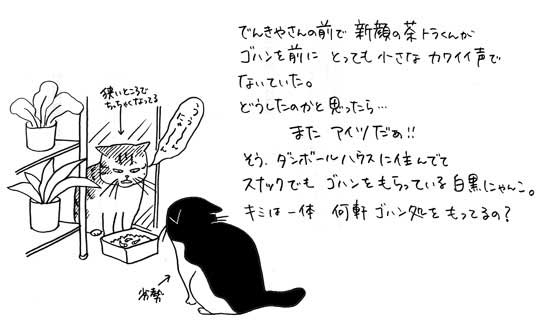 でんきやさんの前で 新顔の茶トラくんが
ゴハンを前に とっても 小さな カワイイ声で
ないていた。
どうしたのかと思ったら…
また アイツだぁ!!
そう、ダンボールハウスに住んでて
スナックでも ゴハンをもらっている 白黒にゃんこ。
キミは一体 何軒 ゴハン処をもってるの?
狭いところで
ちっちゃくなってる
劣勢